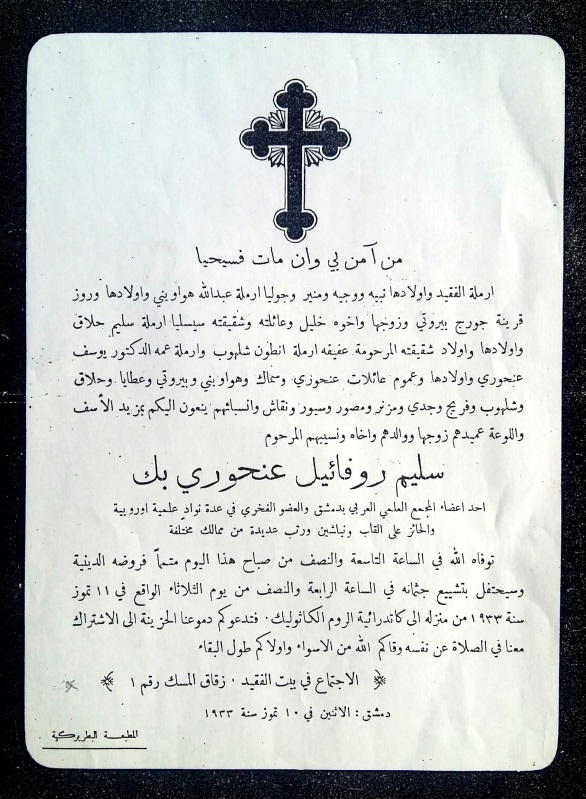 من آمن بي وان مات فسيحيا
ارملة الفقيد واولادها نبيه ووجيه ومنير وجوليا ارملة عبدالله هواويني واولادها وروز
قرينة جورج بيروتي وزوجها واخوه خليل وعائلته وشقيقته سيسليا ارملة سليم حلاق
واولادها واولاد شقيقته المرحومة عفيفه ارملة انطون شلهوب وارملة عمه الدكتور يوسف
عنحوري واولادها وعموم عائلات عنحوري وسماك وهواويني وبيروتي وعطايا وحلاق
وشلهوب وفريج وجدي ومزنر ومصور وسيور ونقاش وانسبائهم ينعون اليكم بمزيد الأسف
واللوعة عميدهم زوجها ووالدهم واخاه ونسيبهم المرحوم
سليم روفائيل عنحوري بك
احد اعضاء المجمع العلمي العربي بدمشق والعضو الفخري في عدة نوادٍ علمية اوروبية
والحائز على القاب ونياشين ورتب عديدة من ممالك مختلفة
توفاه الله في الساعة التاسعة والنصف من صباح هذا اليوم متمماً فروضه الدينية
وسيحتفل بتشييع جثمانه في الساعة الرابعة والنصف من يوم الثلاثاء الواقع في ١١ تموز
سنة ١٩٣٣ من منزله الى كاتدرائية الروم الكاثوليك. فتدعوكم دموعنا الحزينة الى الاشتراك
معنا في الصلاة عن نفسه وقاكم الله من الاسواء واولاكم طول البقاء
الاجتماع في بيت الفقيد . زقاق المسك رقم ١
دمشق : الاثنين في ١٠ تموز سنة ١٩٣٣
المطبعة البطريركية